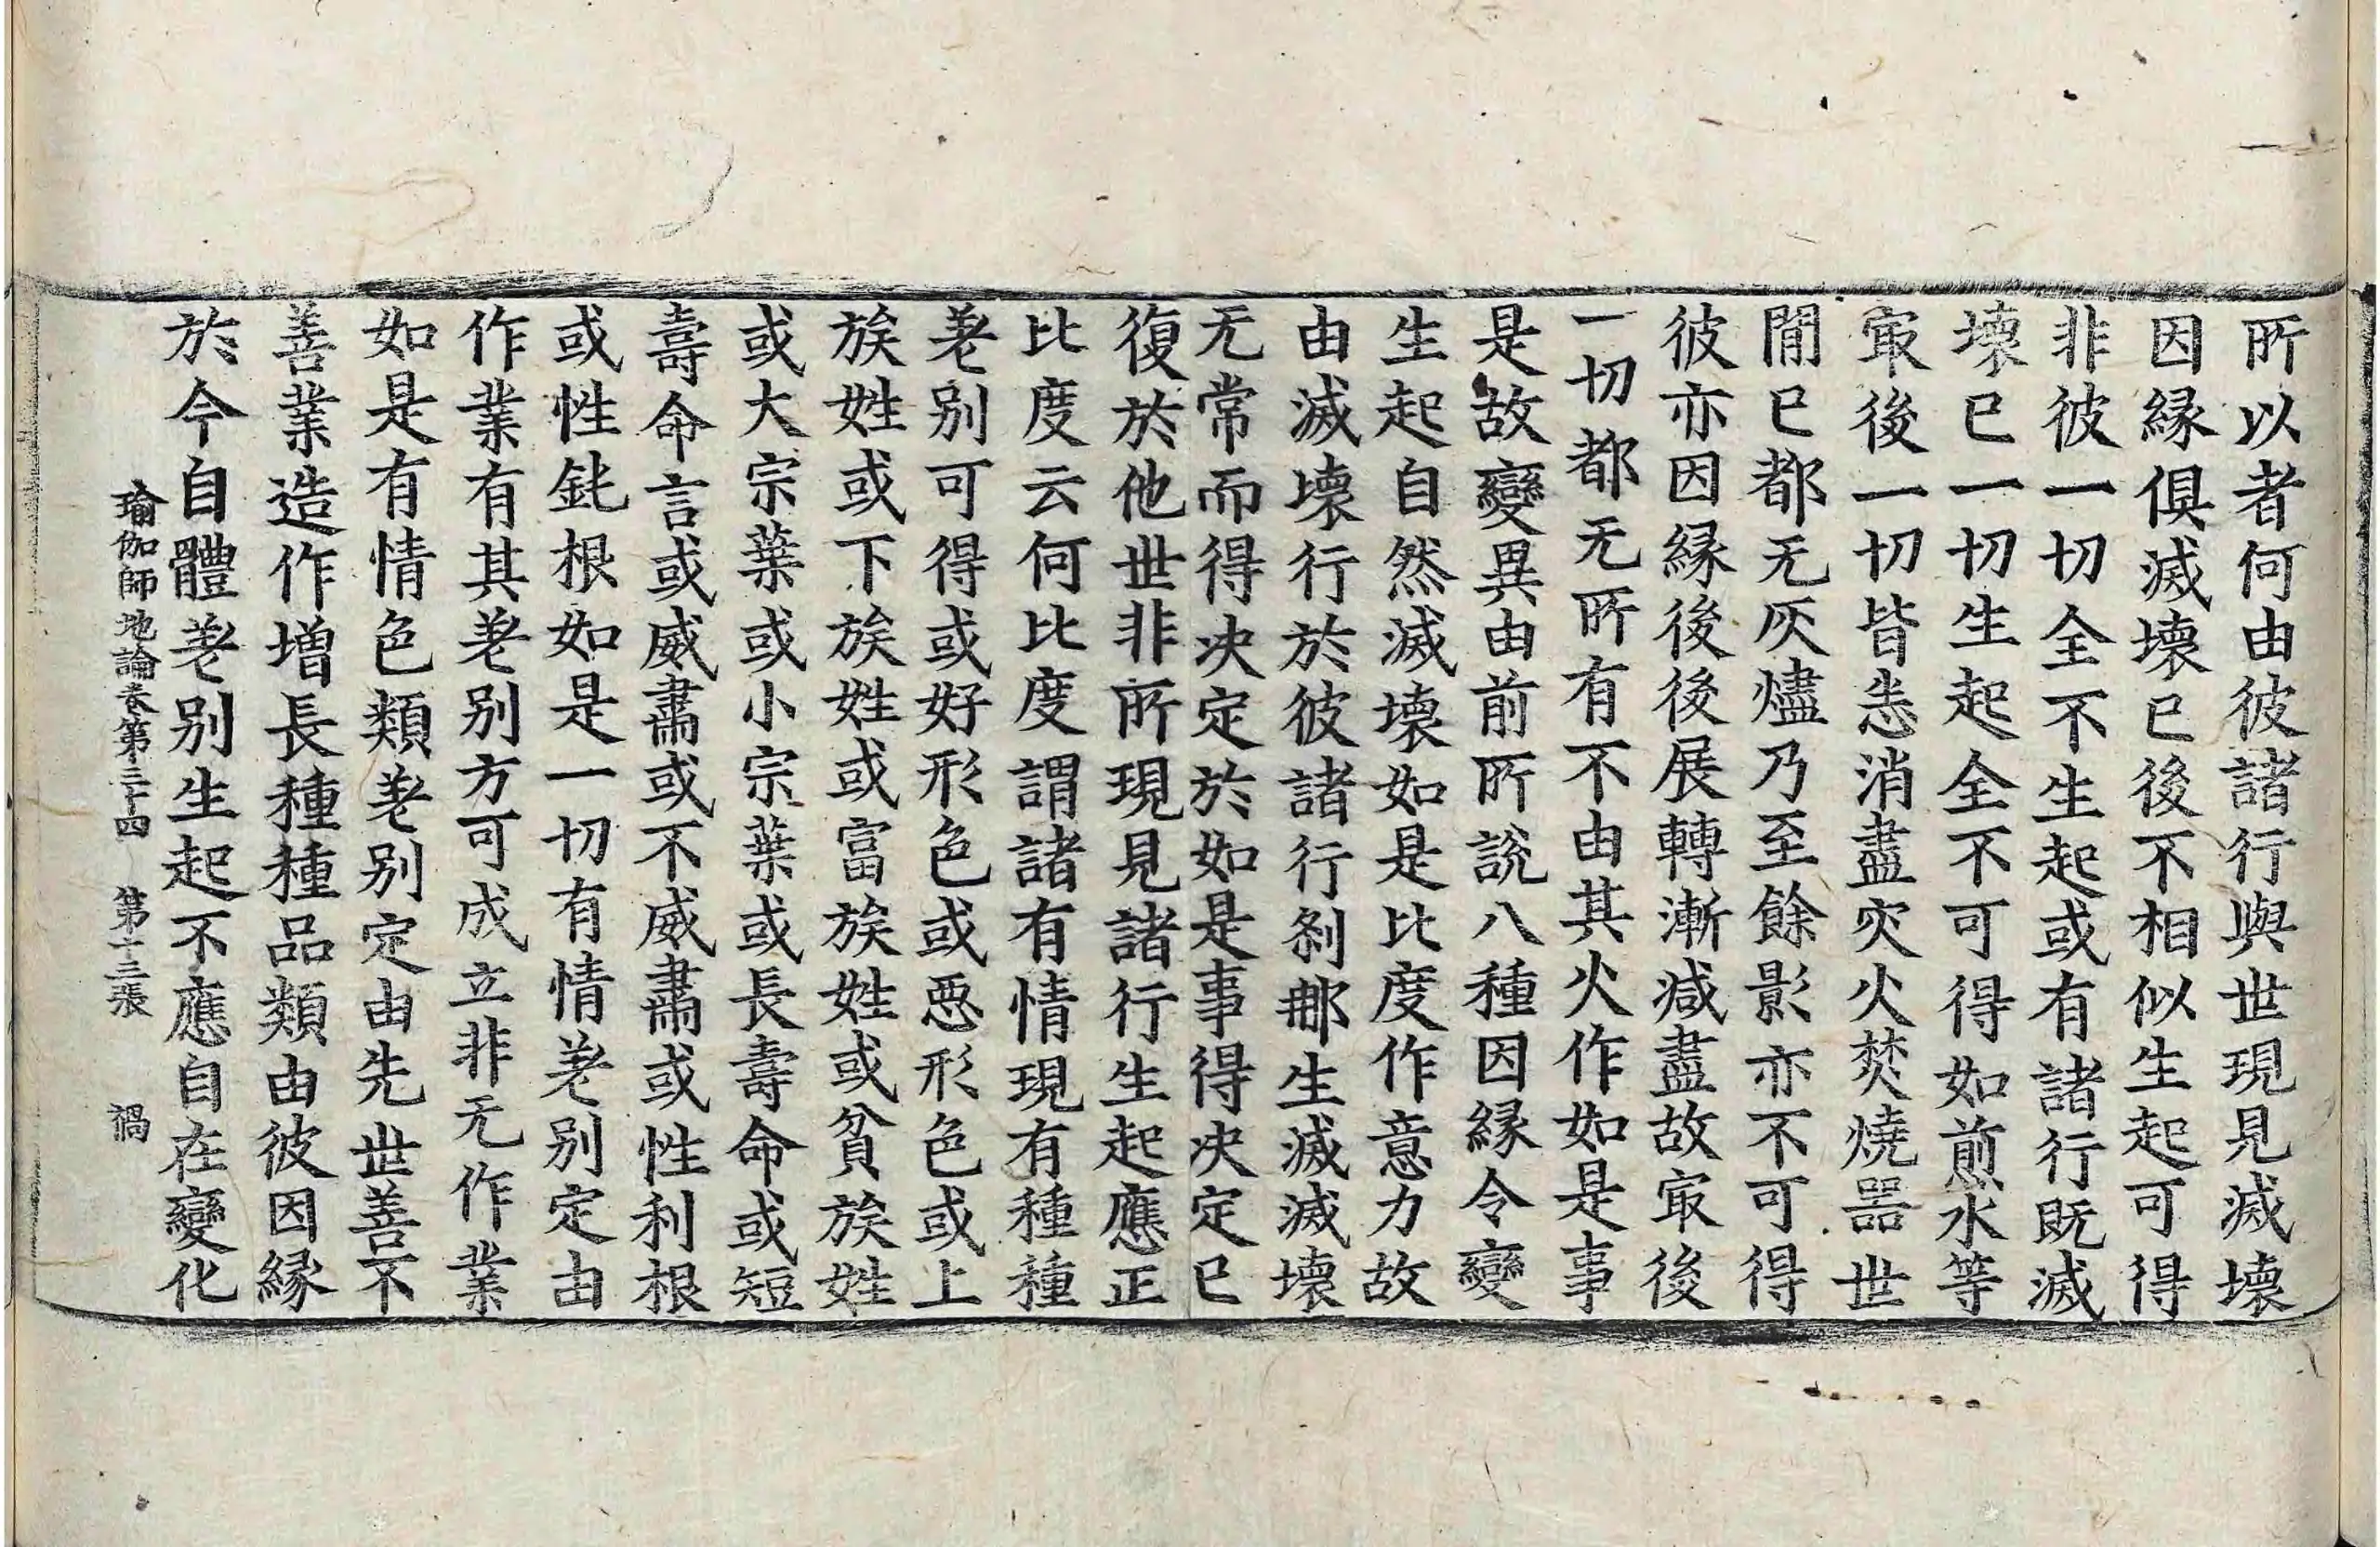 所以者何由彼諸行與世現見滅壞
因縁俱滅壞已後不相似生起可得
非彼一切全不生起或有諸行旣滅
壞已一切生起全不可得如煎水等
冣後一切皆悉消盡灾火焚燒器世
間已都无灰燼乃至餘影亦不可得
彼亦因縁後後展轉漸減盡故冣後
一切都无所有不由其火作如是事
是故變異由前所說八種因縁令變
生起自然滅壞如是比度作意力故
由滅壞行於彼諸行刹那生滅滅壞
无常而得决定於如是事得决定已
復於他世非所現見諸行生起應正
比度云何比度謂諸有情現有種種
差別可得或好形色或惡形色或上
族姓或下族姓或富族姓或貧族姓
或大宗葉或小宗葉或長壽命或短
壽命言或威肅或不威肅或性利根
或性鈍根如是一切有情差別定由
作業有其差別方可成立非无作業
如是有情色類差別定由先世善不
善業造作增長種種品類由彼因縁
於今自體差別生起不應自在變化
瑜伽師地論卷第三十四 第十三張 禍